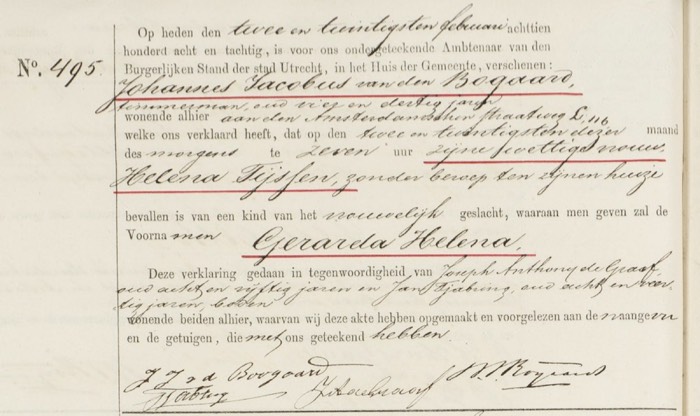 Nº. 495.
Op heden den twee en twintigsten februari achttien
honderd acht en tachtig, is voor ons ondergeteekende Ambtenaar van den
Burgerlijken Stand der stad Utrecht, in het Huis der Gemeente, verschenen:
Johannes Jacobus van den Bogaard,
timmerman, oud vier en dertig jaren
wonende alhier aan den Amsterdamschen straatweg L, 46
welke ons verklaard heeft, dat op den twee en twintigsten dezer maand
des morgens te zeven uur zijne wettige vrouw
Helena Tijssen, zonder beroep ten zijnen huize
bevallen is van een kind van het vrouwelijk geslacht, waaraan men geven zal de
Voorna men Gerarda Helena.
Deze verklaring gedaan in tegenwoordigheid van Joseph Anthony de Graaf,
oud acht en vijftig jaren en Jan Tjabring, oud acht en veer-
tig jaren, boden
wonende beiden alhier, waarvan wij deze akte hebben opgemaakt en voorgelezen aan de naangever
en de getuigen, die met ons geteekend hebben.
J J v d Boogaard